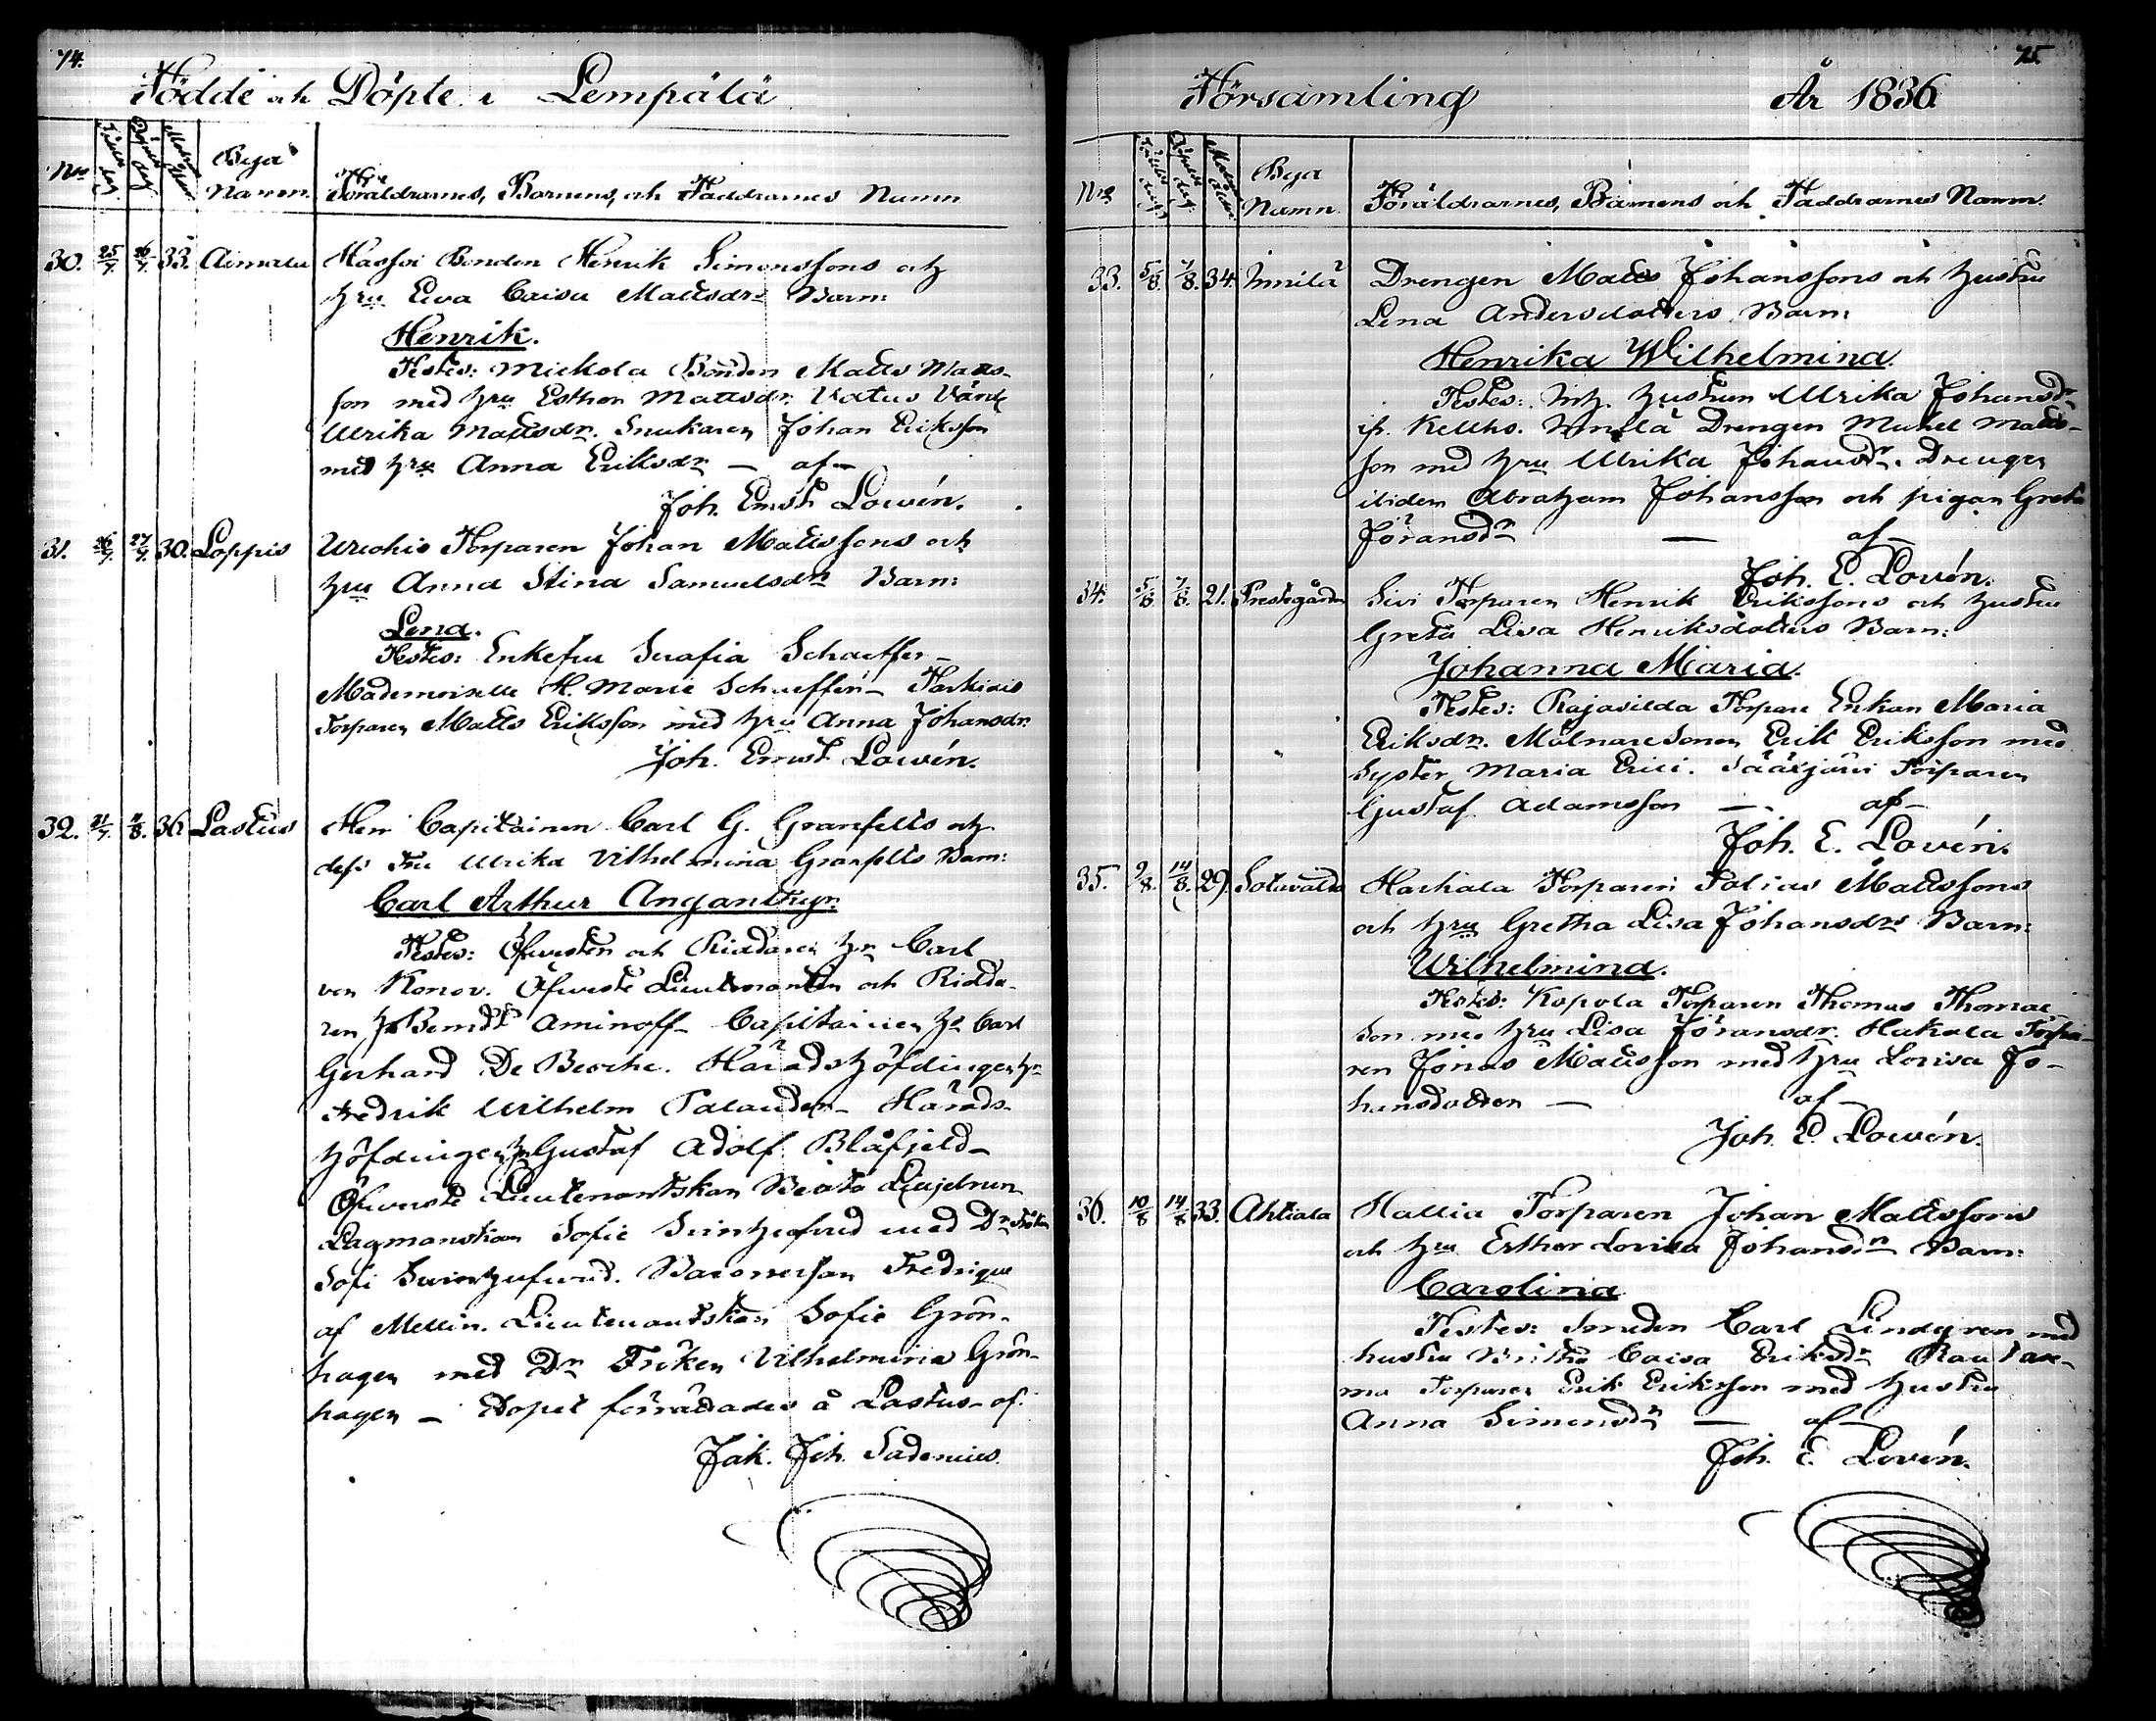 74.
Födde och Döpte i Lempälä
No Födelse dag Döpelse dag Modrens Ålder Bya Namn Föräldrarnes, Barnens, och Faddrarnes Namn
30. 25/7. 26/7. 33. Aimala Hassoi Bonden Henrik Simonssons och
hru Eva Caisa Mattsdrs Barn:
Henrik.
Testes: Mickola Bonden Matts Matts-
son med hru Esther Mattsdr. Vatus Värd
Ulrika Mattsdr. Snukaren Johan Eriksson
med hru Anna Eriksdr — af —
Joh. Ernst Lowén.
31. 26/7. 27/7. 30. Loppis Torparen Johan Matssons och
hru Anna Stina Samuelsdrs Barn:
Lena.
Testes: Enkefru Serafia Schaeffer —
Mademoiselle H. Marie Schaeffer —
Torparen Matts Eriksson med hru Anna Johansdr.
Joh. Ernst Lowén.
32. 21/7. /8. 36 Lastus Herr Capitainen Carl G. Granfelts och
dess Fru Ulrika Vilhelmina Granfelts Barn:
Carl Arthur Anganthyr.
Testes: Öfversten och Riddaren hr Carl
von Konov. Öfverste Lieutenanten och Ridda-
ren hr Berndt Aminoff — Capitainen hr Carl
Gerhard De Besche. Häradshöfdingen hr
Fredrik Wilhelm Palander — Härads-
höfdingen hr Gustaf Adolf Blåfjeld —
Öfverste Lieutenantskan Beata
Lagmanskan Sofie Svinhufvud med Dr Fröken
Sofi Svinhufvud. Baronessan Fredrique
af Mellin. Lieutenantskan Sofie Grön-
hagen med Dr Fröken Vilhelmina Grön-
hagen — Dopet förrättades å Lastus — af
Jak. Joh. Sadenius.
75.
Församling År 1836.
No Födelse dag Döpelse dag Modrens Ålder Bya Namn Föräldrarnes, Barnens och Faddrarnes Namn.
33. 5/8. 7/8. 34. Innilä Drengen Matts Johanssons och hustru
Lena Andersdotters Barn:
Henrika Wilhelmina.
Testes: Inh. hustrun Ulrika Johansdr
Innilä Drengen Mickel Matts-
son med hru Ulrika Johansdr. Drengen
ibidem Abraham Johansson och pigan Greta
Göransdr — af —
Joh. E. Lovén.
34. 5/8. 7/8. 21. Prestegården Sivi Torparen Henrik Erikssons och hustru
Greta Lisa Henriksdotters Barn:
Johanna Maria.
Testes: Rajasilda Torpare Enkan Maria
Eriksdr. Mölnare Sonen Erik Eriksson med
Syster Maria Erici. Sääxjärvi Torparen
Gustaf Adamsson — af —
Joh. E. Lovén.
35. 9/8. 14/8. 29. Sotavalda Harhala Torparen Tobias Mattssons
och hru Gretha Lisa Johansdrs Barn:
Wilhelmina.
Testes: Kopola Torparen Thomas Thomas-
son med hru Lisa Göransdr. Hakala Torpa-
ren Jonas Mattsson med hru Lovisa Jo-
hansdotter — af —
Joh. E. Lowén.
36. 10/8 14/8 33. Ahtiala Hallia Torparen Johan Mattssons
och hru Esther Lovisa Johansdrs Barn:
Carolina
Testes: Smeden Carl Lindgren med
hustru Britha Caisa Eriksdr Rautase-
ma Torparen Erik Eriksson med hustru
Anna Simonsdr — af —
Joh. E. Lovén.